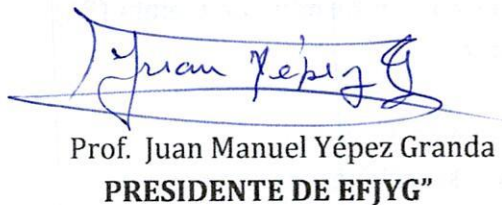 Juan Yépez G
Prof. Juan Manuel Yépez Granda
PRESIDENTE DE EFJYG”